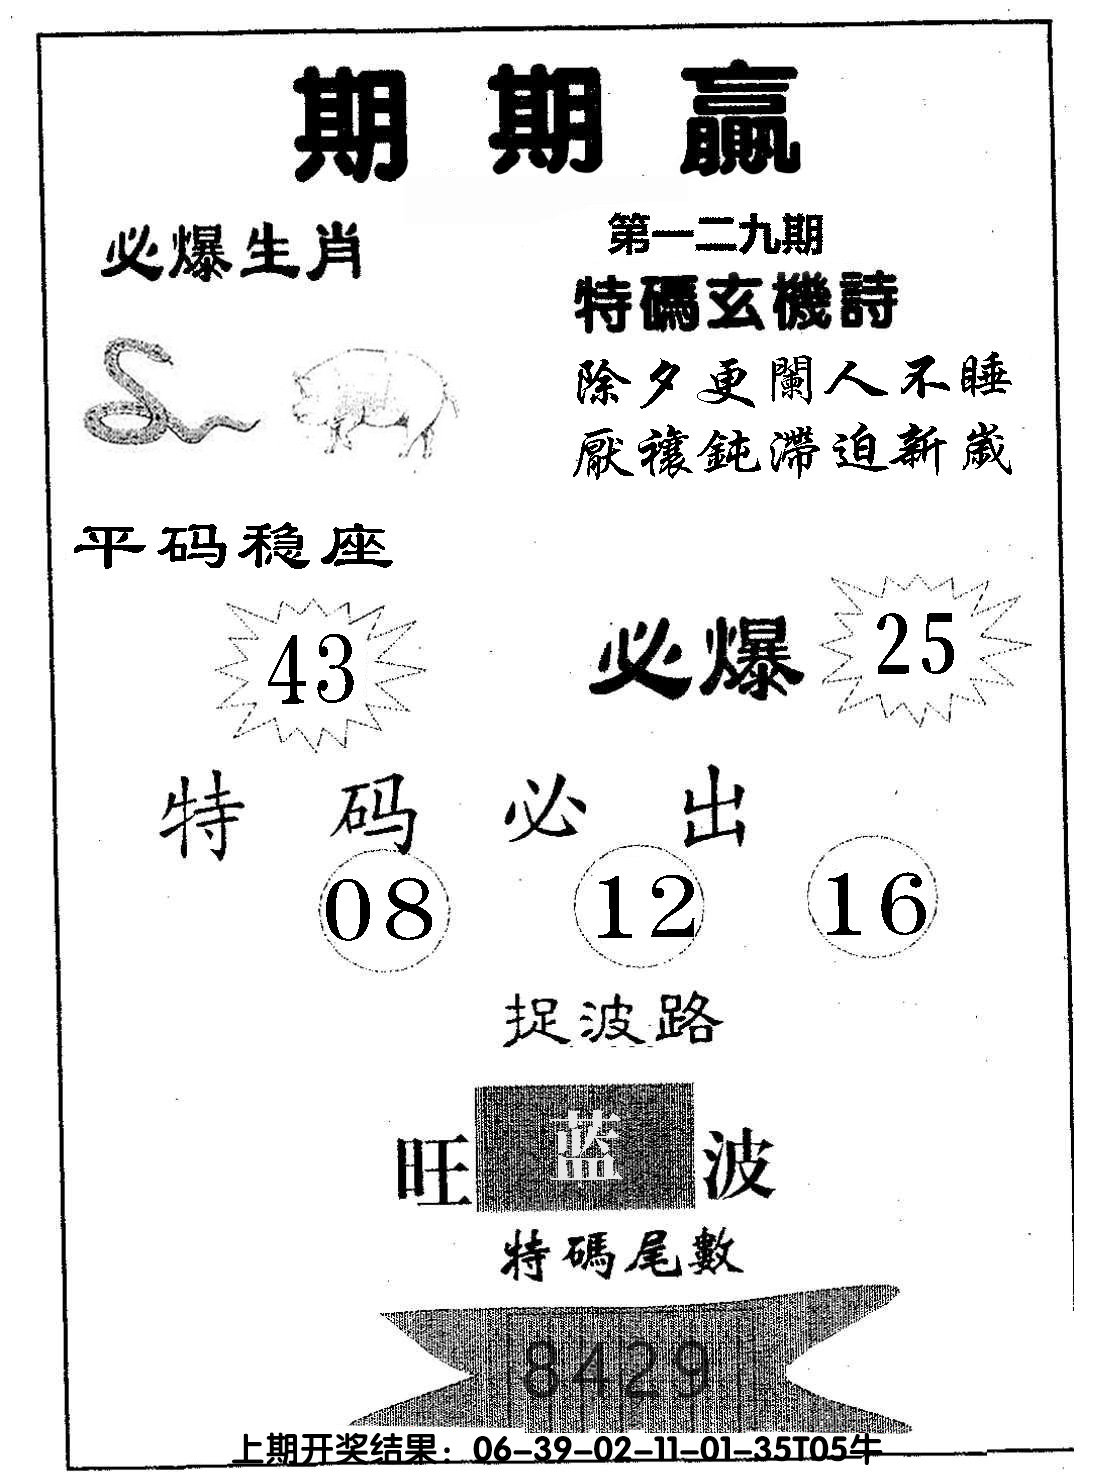 期期赢
必爆生肖
第一二九期
特碼玄機詩
除夕更闌人不睡
厭禳鈍滯迫新歲
平码稳座
43
必爆 25
特码必出
08 12 16
捉波路
旺蓝波
特碼尾數
8429
上期开奖结果：06-39-02-11-01-35T05牛